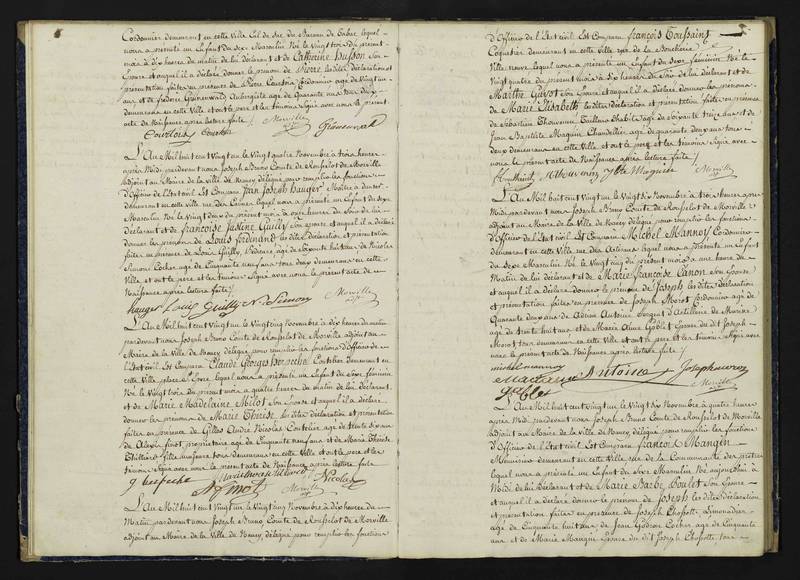 Cordonnier demeurant en cette Ville Cul de Sac du Bureau de Tabac lequel
nous a présenté un Enfant du sexe Masculin Né le Vingt trois du présent
mois à dix heures du matin de lui déclarant et de Catherine Husson son
Epouse et auquel il a déclaré donner le prenom de Pierre lesdites déclaration et
présentation faites en présence de Pierre Cordonnier agé de Vingt un
ans et de Aubergiste agé de Quarante un ans tous deux
demeurans en cette Ville et ont le pere et les témoins Signé avec nous le présent
acte de Naissance après lecture faite /.
Courtois Morville
L'An Mil huit cent Vingt un le Vingt quatre Novembre à trois heures
après Midi pardevant nous Joseph Bruno Comte de Rouselot de Morville
adjoint au Maire de la Ville de Nancy délégué pour remplir les fonctions
d'Officier de l'Etat civil Est Comparu Jean Joseph hauger
demeurant en cette Ville rue lequel nous a présenté un Enfant du sexe
Masculin Né le Vingt deux du présent mois à onze heures du Soir de lui
déclarant et de françoise Justine Guilly son épouse et auquel il a déclaré
donner les prenoms de Louis ferdinand lesdites déclaration et présentation
faites en presence de Louis Guilly agé de Soixante huit ans de Nicolas
Simon Cocher agé de Cinquante neuf ans tous deux demeurans en cette
Ville et ont le pere et les témoins Signé avec nous le présent acte de
Naissance après lecture faite /.
hauger Louis Guilly N Simon Morville
L'An Mil huit cent Vingt un le Vingt cinq Novembre à dix heures du matin
pardevant nous Joseph Bruno Comte de Rouselot de Morville adjoint au
Maire de la Ville de Nancy délégué pour remplir les fonctions d'Officier de
l'Etat civil Est Comparu Claude Georges Coutelier demeurant en
cette Ville place lequel nous a présenté un Enfant du Sexe féminin
Né le Vingt trois du présent mois à quatre heures du matin de lui déclarant
et de Marie Madelaine Milot Son Epouse et auquel il a déclaré
donner les prenoms de Marie Thérèse lesdites déclaration et présentation
faites en présence de Gilles André Nicolas Coutelier agé de trente Six ans
de propriétaire agé de Cinquante neuf ans et de Marie Thérèse
fille tous demeurans en cette Ville et ont le pere et les
témoins Signé avec nous le présent acte de Naissance après lecture faite
Nicolas
Morville
L'An Mil huit cent Vingt un le Vingt cinq Novembre à dix heures du
Matin pardevant nous Joseph Bruno Comte de Rouselot de Morville
adjoint au Maire de la Ville de Nancy délégué pour remplir les fonctions
d'Officier de l'Etat civil Est Comparu françois Toussaint
Coquetier demeurant en cette Ville rue de la Boucherie
Ville neuve lequel nous a présenté un Enfant du Sexe féminin Né le
Vingt quatre du présent mois à Six heures du Soir de lui déclarant et de
Marthe Guyot Son Epouse et auquel il a déclaré donner les prenoms
de Marie Elisabeth lesdites déclaration et présentation faites en présence
de Sébastien Thouvenin agé de Soixante trois ans et de
Jean Baptiste Maguin Chandellier agé de quarante deux ans tous
deux demeurans en cette Ville et ont le pere et les témoins Signé avec
nous le présent acte de Naissance après lecture faite /.
Thouvenin Maguin Morville
L'An Mil huit cent Vingt un le Vingt Six Novembre à trois heures après
Midi pardevant nous Joseph Bruno Comte de Rouselot de Morville
adjoint au Maire de la Ville de Nancy délégué pour remplir les fonctions
d'Officier de l'Etat civil Est Comparu Michel Mannoy Cordonnier
demeurant en cette Ville rue des Artisans lequel nous a présenté un Enfant
du Sexe Masculin Né le Vingt cinq du présent mois à une heure du
Matin de lui déclarant et de Marie françoise Canon Son Epouse
et auquel il a déclaré donner le prénom de Joseph lesdites déclaration
et présentation faites en présence de Joseph Morot Cordonnier agé de
Quarante deux ans de Antoine Sergent d'Artillerie de Marine
agé de trente huit ans et de Marie Anne Goblet Epouse du dit Joseph
Morot tous demeurans en cette Ville et ont le pere et les témoins Signé avec
nous le présent acte de Naissance après lecture faite /.
michel mannoy
Antoine Joseph morot
Morville
L'An Mil huit cent Vingt un le Vingt Six Novembre à quatre heures
après Midi pardevant nous Joseph Bruno Comte de Rouselot de Morville
adjoint au Maire de la Ville de Nancy délégué pour remplir les fonctions
d'Officier de l'Etat civil Est Comparu françois Mangin
Menuisier demeurant en cette Ville rue de la Communauté des prêtres
lequel nous a présenté un Enfant du Sexe Masculin Né aujourd'hui à
Midi de lui déclarant et de Marie Barbe Boulet Son Epouse
et auquel il a déclaré donner le prenom de Joseph lesdites déclaration
et présentation faites en présence de Joseph Chopotte Limonadier
agé de Cinquante huit ans de Jean Cocher agé de Cinquante
ans et de Marie Mangin Epouse du dit Joseph Chopotte, tous